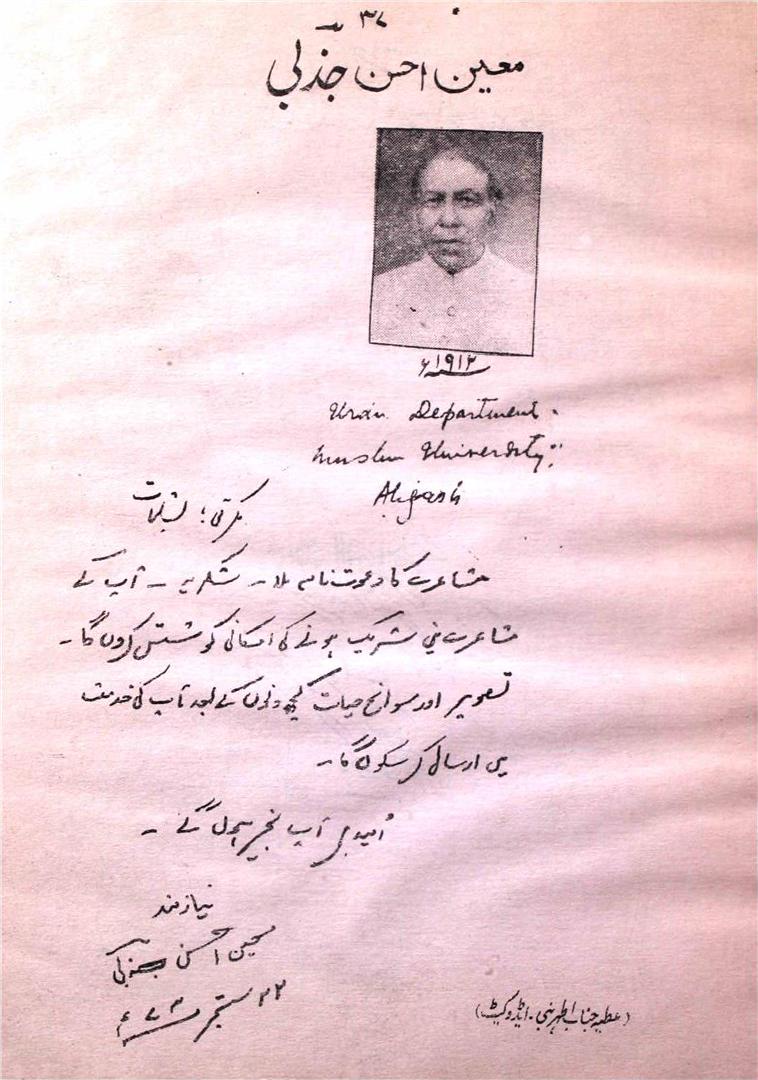 ۳۷
معین احسن جذبی
۱۹۱۲ء
Urdu Department.
Muslim University:
Aligarh
مکرمی؛ تسلیمات
مشاعرے کا دعوت نامہ ملا۔ شکریہ۔ آپ کے
مشاعرے میں شریک ہونے کی امکانی کوشش کروں گا۔
تصویر اور سوانح حیات کچھ دنوں کے بعد آپ کی خدمت
میں ارسال کر سکوں گا۔
اُمید ہے آپ بخیر ہوں گے۔
نیازمند
معین احسن جذبی
۲۲ ستمبر ۷۳ء
(عطیہ جناب اطہر نبی۔ ایڈوکیٹ)